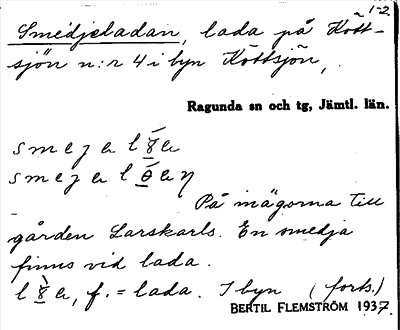 1-2
Smedjeladan, lada på Kött-
sjön n:r 4 i byn Köttsjön,
Ragunda sn och tg, Jämtl. län.
På mägorna till
gården Larskarls. En smedja
finns vid lada.
f. = lada. I byn (forts.)
BERTIL FLEMSTRÖM 1937.